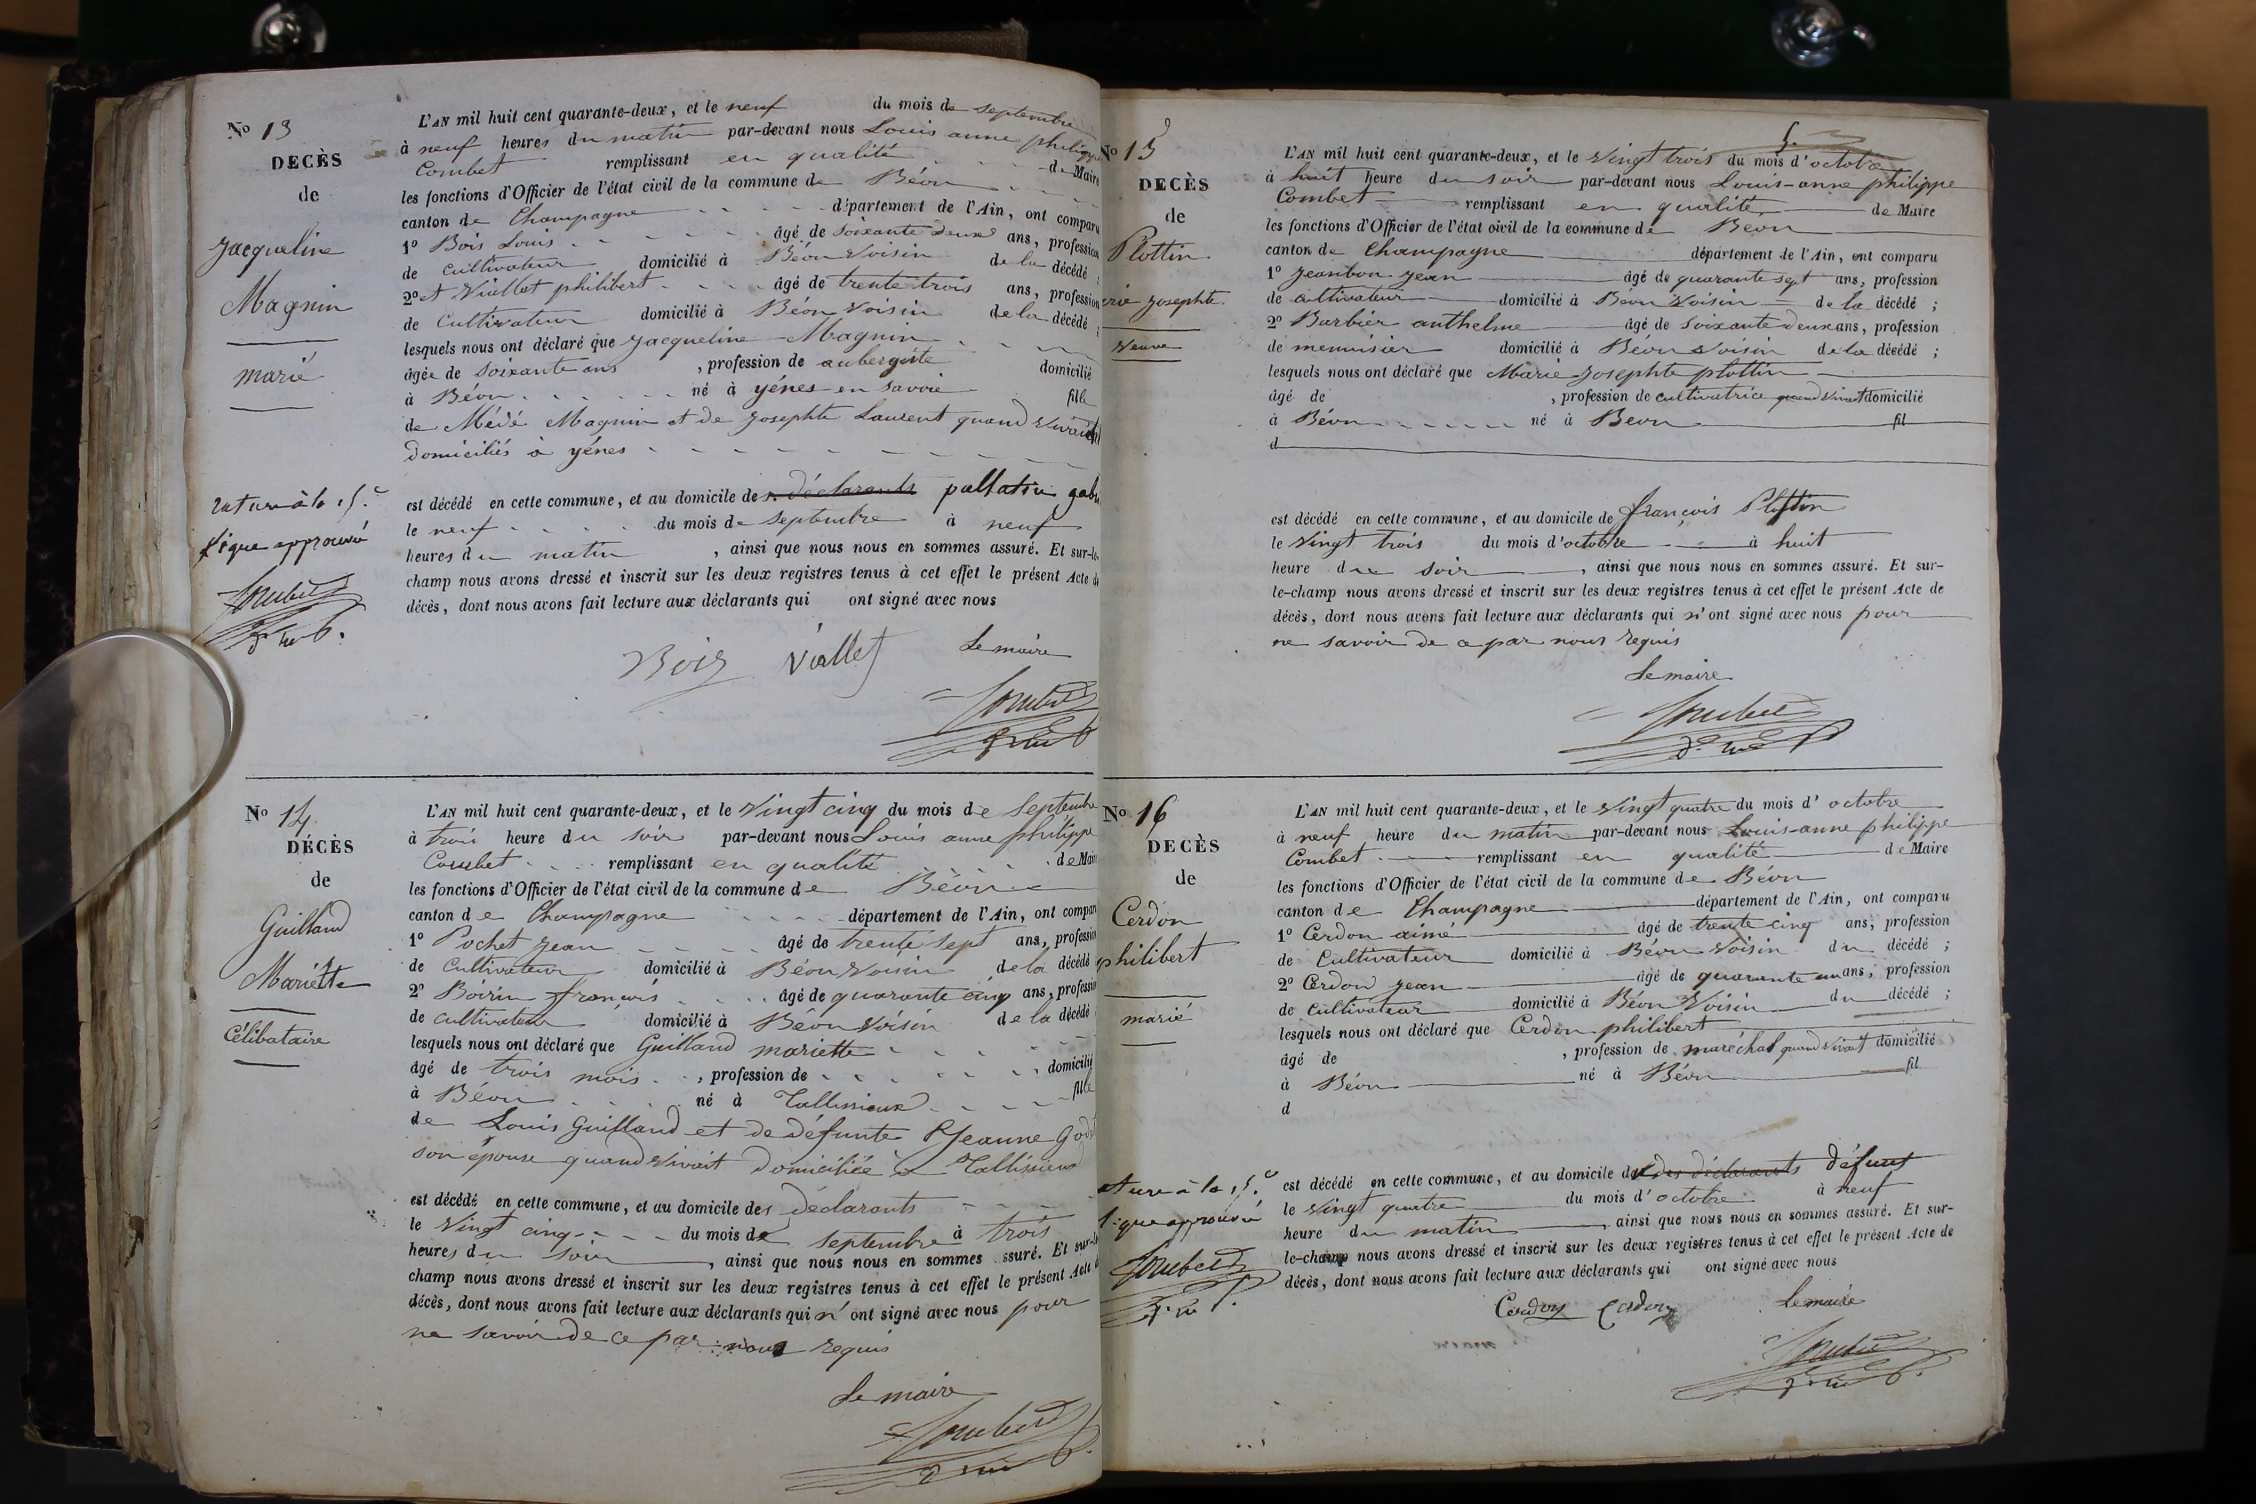 No 13
DECÈS
de
Jacqueline
Magnin
marié
L'AN mil huit cent quarante-deux, et le neuf du mois de septembre
à neuf heures du matin par-devant nous Louis anne philippe
Combet remplissant en qualité de Maire
les fonctions d'Officier de l'état civil de la commune de Béon
canton de Champagne département de l'Ain, ont comparu
1º Bois Louis âgé de soixante deux ans, profession
de cultivateur domicilié à Béon voisin de la décédé ;
2º et Viallet philibert âgé de trente trois ans, profession
de cultivateur domicilié à Béon voisin de la décédé ;
lesquels nous ont déclaré que Jacqueline Magnin
âgée de soixante ans , profession de aubergiste domicilié
à Béon né à yénes en savoie fille
de Médé Magnin et de Josephte Laurent quand vivaient
domiciliés à yénes
rature à la 15e
ligne approuvé
est décédé en cette commune, et au domicile des déclarants pallatin
le neuf du mois de septembre à neuf
heures du matin , ainsi que nous nous en sommes assuré. Et sur-le-
champ nous avons dressé et inscrit sur les deux registres tenus à cet effet le présent Acte de
décès, dont nous avons fait lecture aux déclarants qui ont signé avec nous
Bois Viallet Le maire
Combet
No 14
DÉCÈS
de
Guilland
Mariette
Célibataire
L'AN mil huit cent quarante-deux, et le vingt cinq du mois de septembre
à trois heure du soir par-devant nous Louis anne philippe
Combet remplissant en qualité de Maire
les fonctions d'Officier de l'état civil de la commune de Béon
canton de Champagne département de l'Ain, ont comparu
1º Pochet Jean âgé de trente sept ans, profession
de cultivateur domicilié à Béon voisin de la décédé
2º Boirin françois âgé de quarante cinq ans, profession
de cultivateur domicilié à Béon voisin de la décédé
lesquels nous ont déclaré que Guilland mariette
âgé de trois mois , profession de domicilié
à Béon né à Tallissieux fille
de Louis Guilland et de défunte Jeanne
son épouse quand vivait domiciliée à Tallissieux
est décédé en cette commune, et au domicile des déclarants
le vingt cinq du mois de septembre à trois
heures du soir , ainsi que nous nous en sommes assuré. Et sur-le-
champ nous avons dressé et inscrit sur les deux registres tenus à cet effet le présent Acte de
décès, dont nous avons fait lecture aux déclarants qui n'ont signé avec nous pour
ne savoir de ce par nous requis
Le maire
Combet
5.
No 15
DÉCÈS
de
Plottin
rie Josephte
veuve
L'AN mil huit cent quarante-deux, et le vingt trois du mois d'octobre
à huit heure du soir par-devant nous Louis-anne philippe
Combet remplissant en qualité de Maire
les fonctions d'Officier de l'état civil de la commune de Béon
canton de Champagne département de l'Ain, ont comparu
1º Jeanbon Jean âgé de quarante sept ans, profession
de cultivateur domicilié à Béon voisin de la décédé ;
2º Barbier anthelme âgé de soixante deux ans, profession
de menuisier domicilié à Béon voisin de la décédé ;
lesquels nous ont déclaré que Marie Josephte plottin
âgé de , profession de cultivatrice quand vivait domicilié
à Béon né à Béon fil
d
est décédé en cette commune, et au domicile de françois Plottin
le vingt trois du mois d'octobre à huit
heure du soir , ainsi que nous nous en sommes assuré. Et sur-
le-champ nous avons dressé et inscrit sur les deux registres tenus à cet effet le présent Acte de
décès, dont nous avons fait lecture aux déclarants qui n'ont signé avec nous pour
ne savoir de ce par nous requis
Le maire
Combet
No 16
DECÈS
de
Cerdon
philibert
marié
L'AN mil huit cent quarante-deux, et le vingt quatre du mois d'octobre
à neuf heure du matin par-devant nous Louis-anne philippe
Combet remplissant en qualité de Maire
les fonctions d'Officier de l'état civil de la commune de Béon
canton de Champagne département de l'Ain, ont comparu
1º Cerdon aimé âgé de trente cinq ans, profession
de Cultivateur domicilié à Béon voisin du décédé ;
2º Cerdon Jean âgé de quarante un ans, profession
de cultivateur domicilié à Béon voisin du décédé ;
lesquels nous ont déclaré que Cerdon philibert
âgé de , profession de maréchal quand vivait domicilié
à Béon né à Béon fil
d
ature à la 15e
ligne approuvé
Combet
est décédé en cette commune, et au domicile du des déclarants défunt
le vingt quatre du mois d'octobre à neuf
heure du matin , ainsi que nous nous en sommes assuré. Et sur-
le-champ nous avons dressé et inscrit sur les deux registres tenus à cet effet le présent Acte de
décès, dont nous avons fait lecture aux déclarants qui ont signé avec nous
Cerdon Cerdon Le maire
Combet